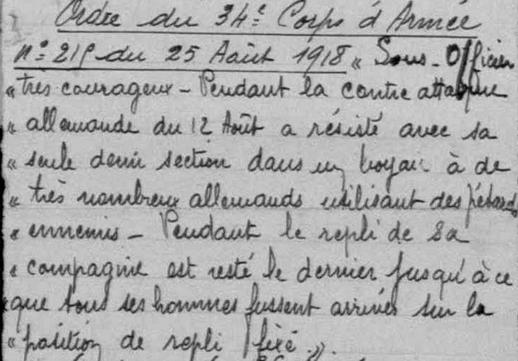 Ordre du 34e Corps d'Armée
n° 219 du 25 Août 1918 « Sous-Officier
« très courageux - Pendant la contre attaque
« allemande du 12 Août a résisté avec sa
« seule demi section dans un boyau à de
« très nombreux allemands utilisant des pétards
« ennemis - Pendant le repli de sa
« compagnie est resté le dernier jusqu'à ce
« que tous ses hommes fussent arrivés sur la
« position de repli fixé ».